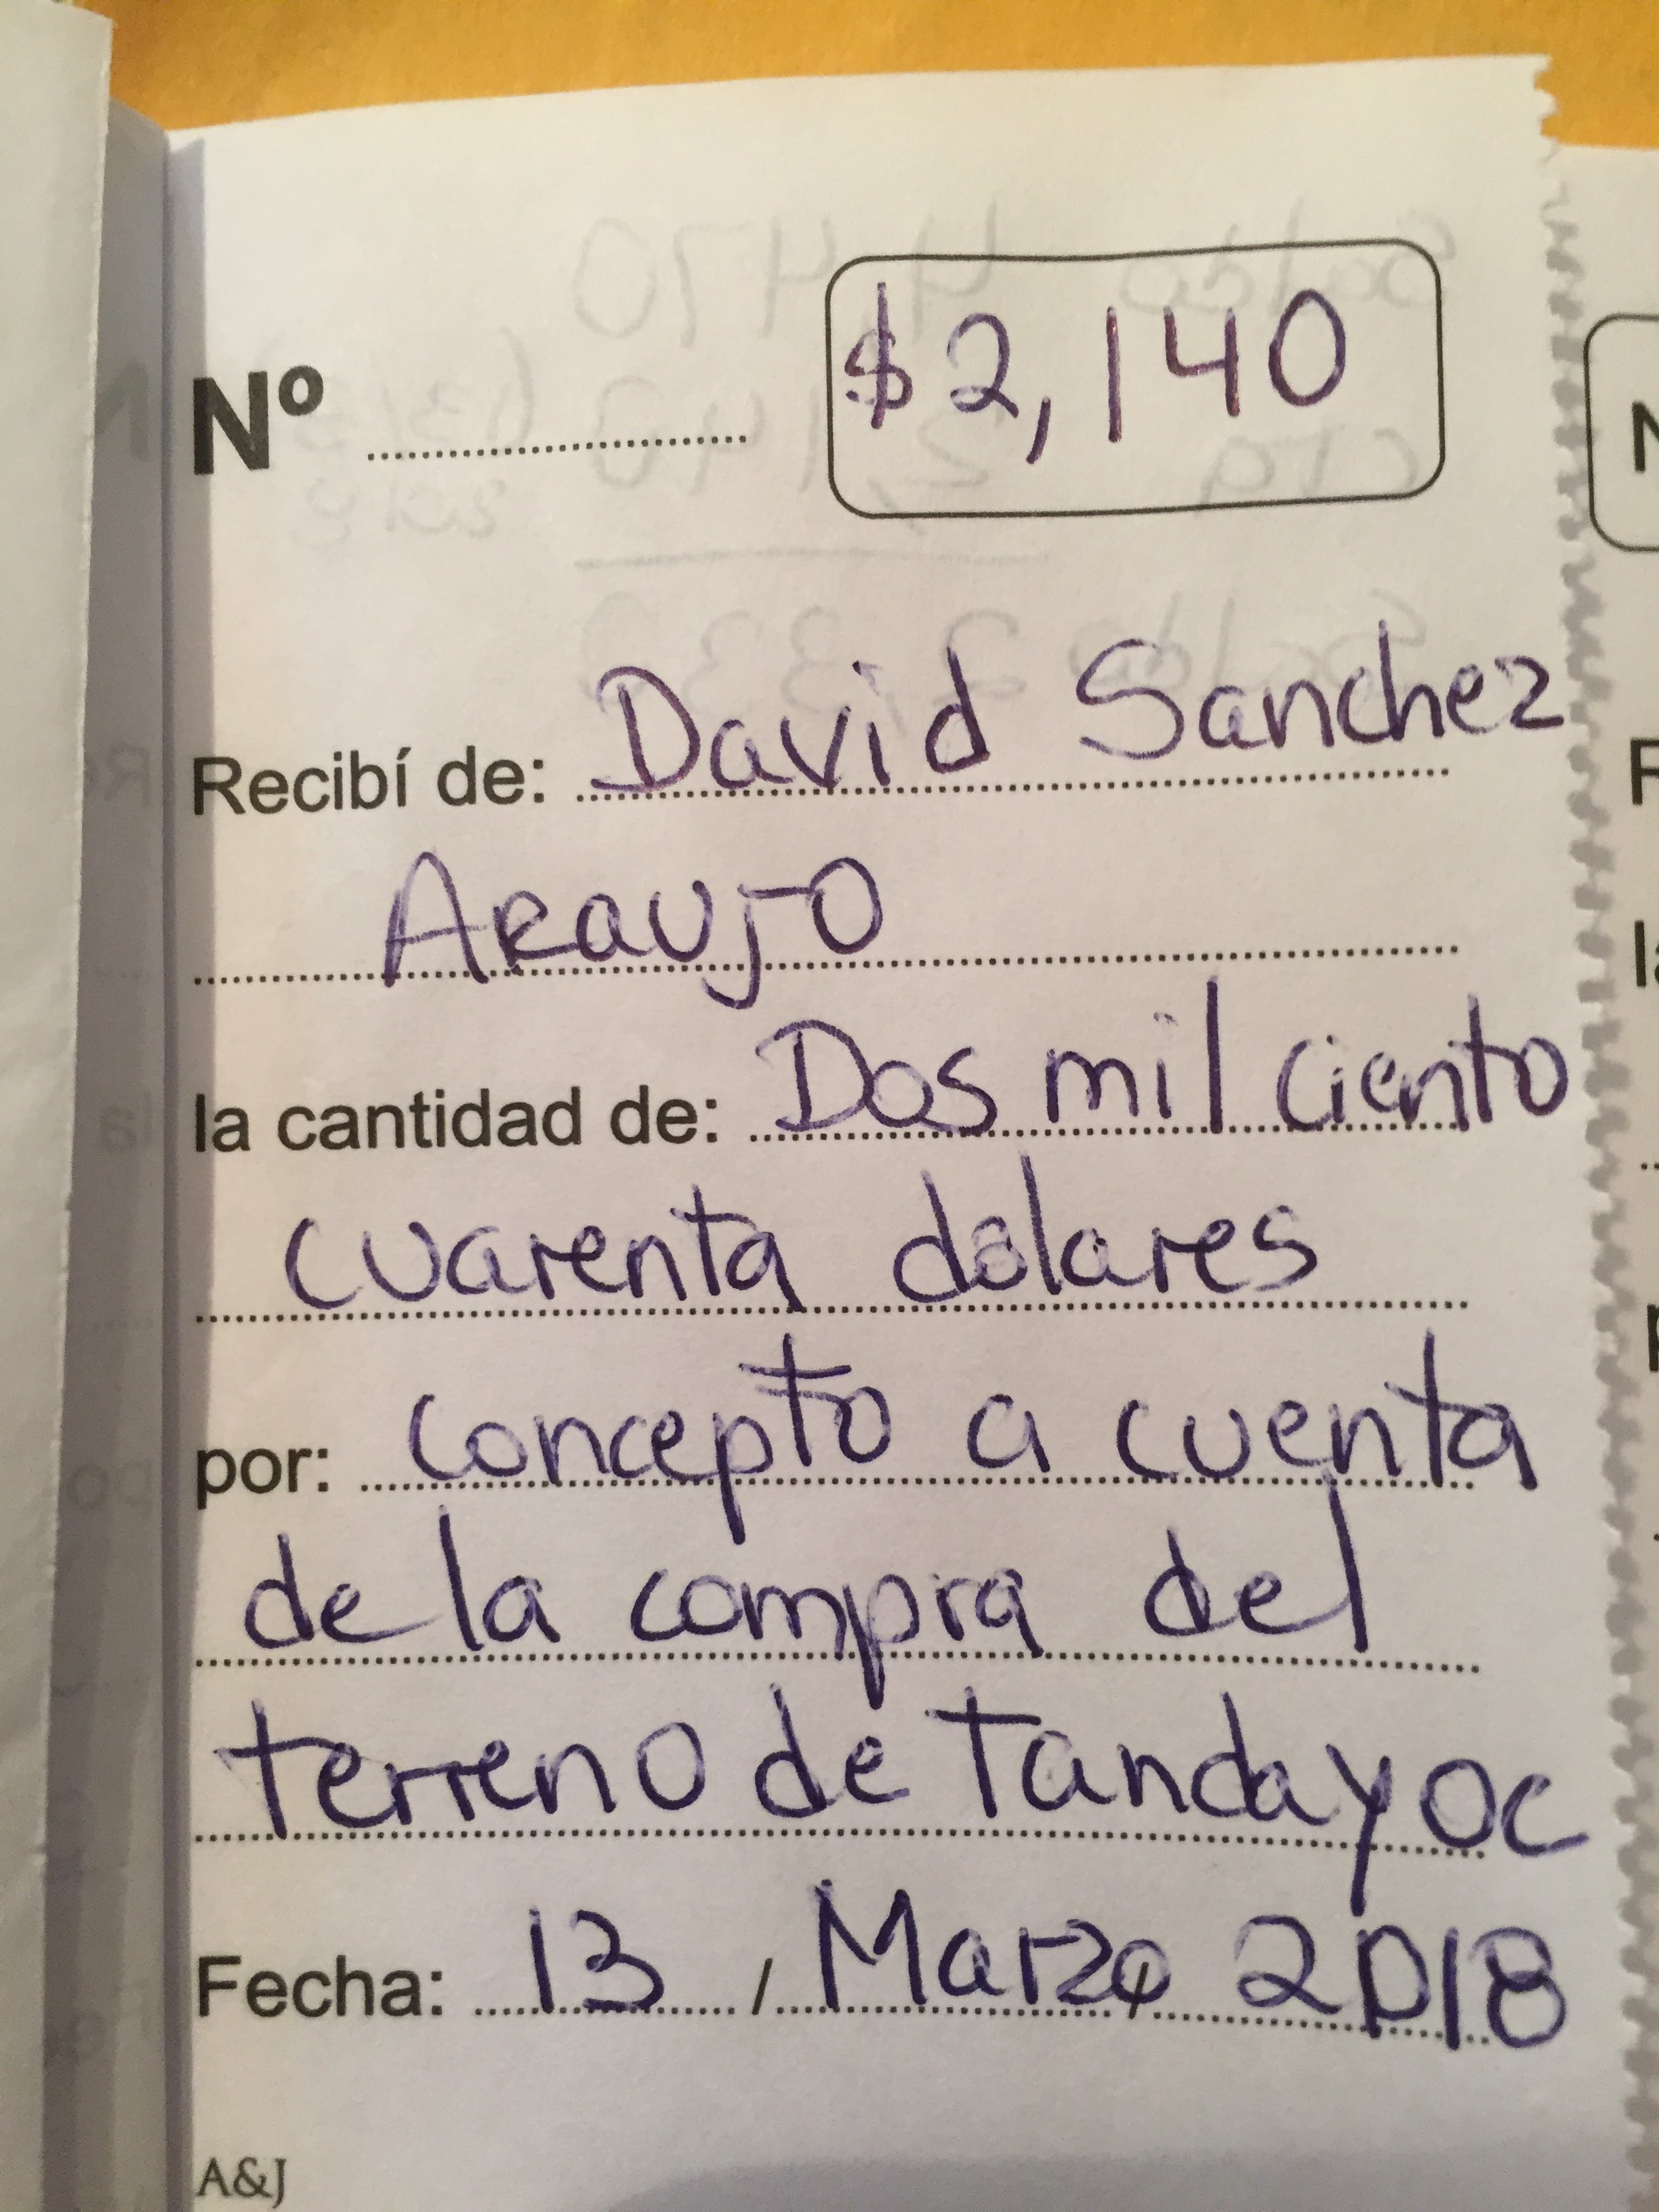 Nº $2,140
Recibí de: David Sanchez
Araujo
la cantidad de: Dos mil ciento
cuarenta dolares
por: concepto a cuenta
de la compra del
terreno de Tandayoc
Fecha: 13 / Marzo / 2018
A&J